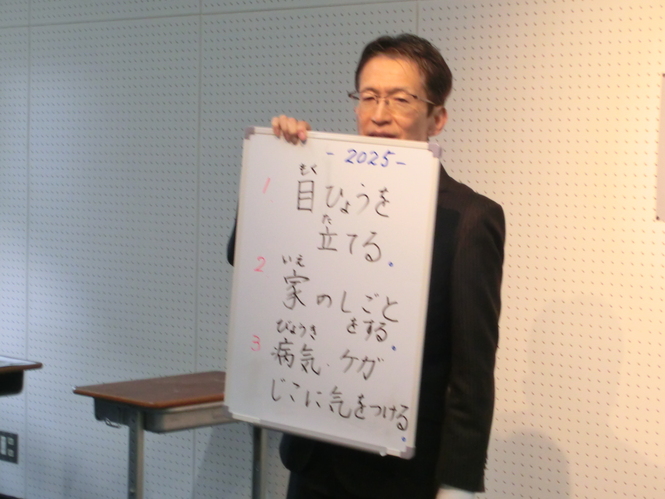 - 2025 -
もく
1 目ひょうを
た
立てる.
いえ
2 家のしごと
をする.
びょうき
3 病気.ケガ
じこに気をつける.